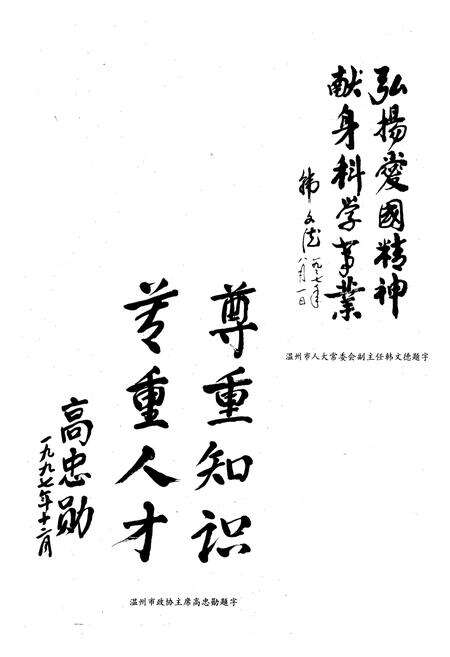 弘揚愛國精神
献身科学事業
韩文德
一九九七年
八月一日
温州市人大常委会副主任韩文德题字
尊重知识
尊重人才
高忠勋
一九九七年十二月
温州市政协主席高忠勋题字